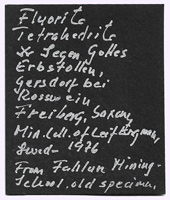 Fluorite
Tetrahedrite
Segen Gottes
Erbstollen,
Gersdorf bei
Rosswein
Freiberg, Saxony,
Min. coll. of Leif Bergman,
Swed - 1976
From Fahlun Mining-
School. old specimen,